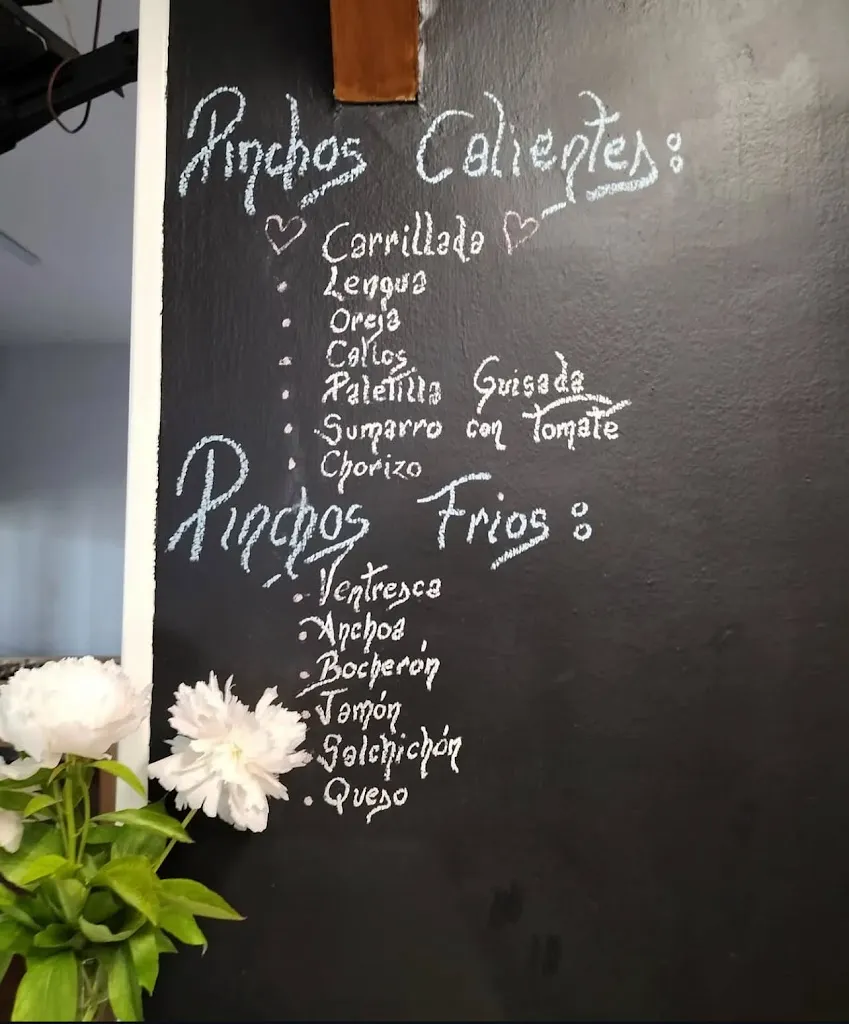 Pinchos Calientes:
Carrillada
Lengua
Oreja
Callos
Paletilla Guisada
Sumarro con Tomate
Chorizo
Pinchos Frios:
Ventresca
Anchoa
Bocherón
Jamón
Salchichón
Queso